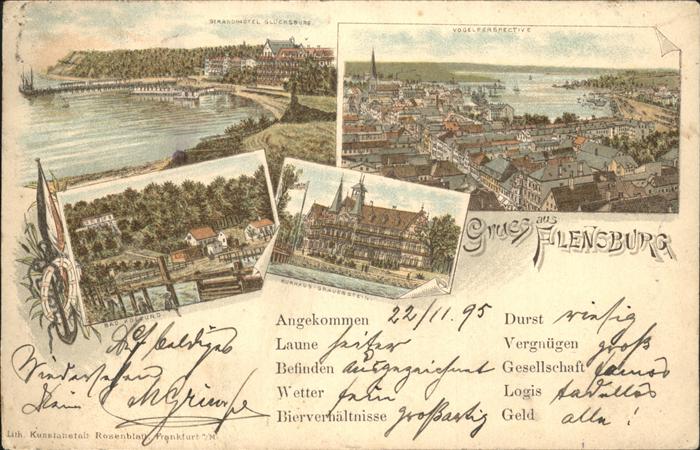 STRANDHOTEL GLÜCKSBURG.
VOGELPERSPECTIVE
BAD
KURHAUS-GRAUENSTEIN.
Gruss aus FLENSBURG
Angekommen 22/11.95
Laune heiter
Befinden Ausgezeichnet
Wetter fein
Bierverhältnisse großartig
Durst riesig
Vergnügen groß
Gesellschaft famos
Logis tadellos
Geld alle!
Auf baldiges
Wiedersehen
Dein
Lith. Kunstanstalt Rosenblatt, Frankfurt a/M.